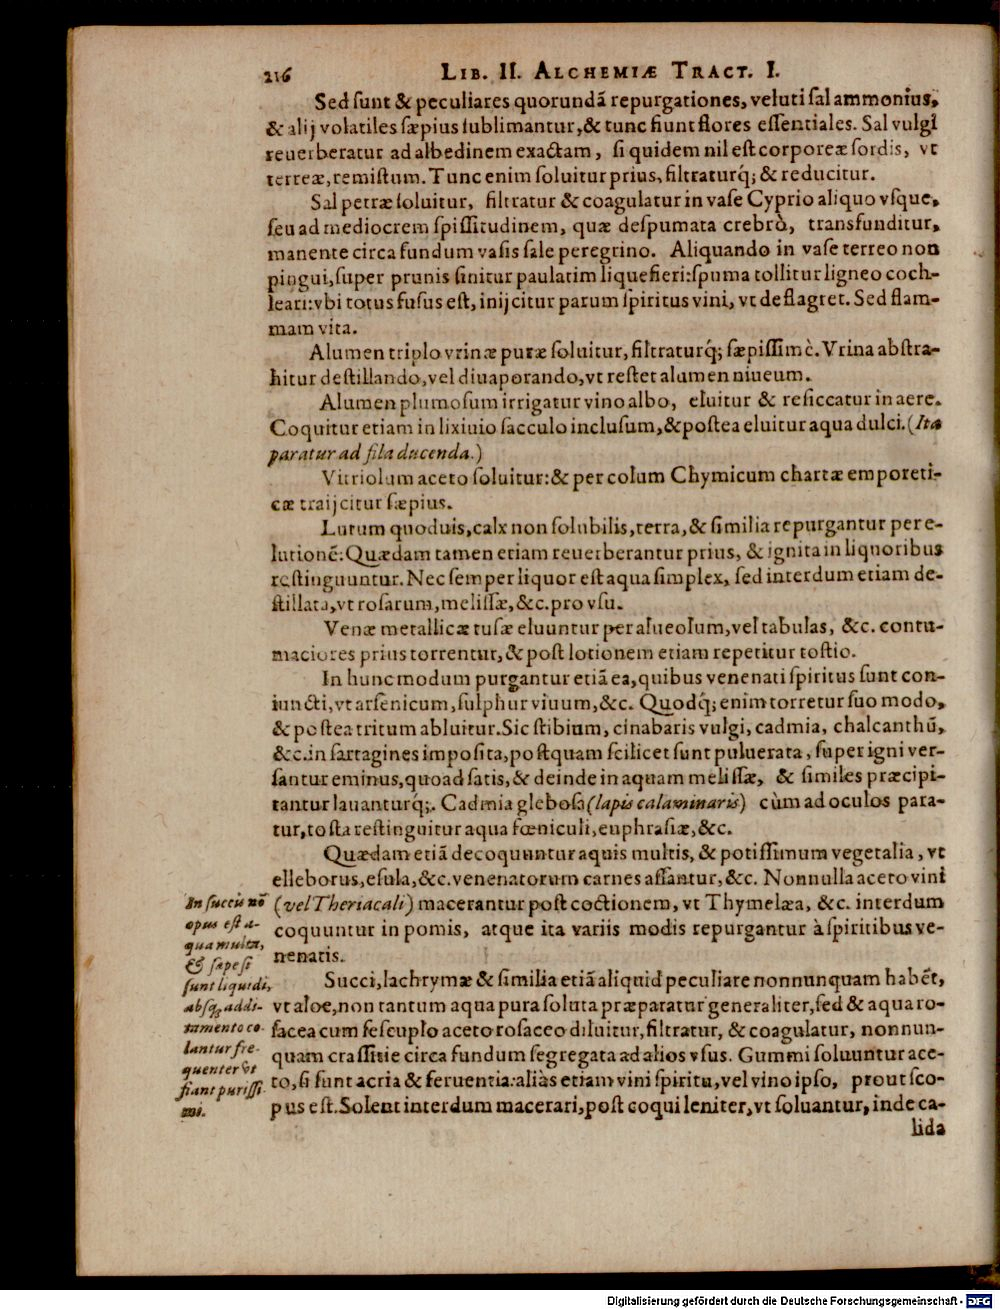 216 LIB. II. ALCHEMIÆ TRACT. I.
Sed ſunt & peculiares quorundā repurgationes, veluti ſal ammonius,
& alij volatiles ſæpius ſublimantur, & tunc fiunt flores eſſentiales. Sal vulgi
reuerberatur ad albedinem exactam, ſi quidem nil eſt corporeæ ſordis, vt
terreæ, remiſtum. Tunc enim ſoluitur prius, filtraturq́;; & reducitur.
Sal petræ ſoluitur, filtratur & coagulatur in vaſe Cyprio aliquo vſque,
ſeu ad mediocrem ſpiſſitudinem, quæ deſpumata crebrò, transfunditur,
manente circa fundum vaſis ſale peregrino. Aliquando in vaſe terreo non
pingui, ſuper prunis ſinitur paulatim liquefieri: ſpuma tollitur ligneo coch-
leari: vbi totus fuſus eſt, inijcitur parum ſpiritus vini, vt deflagret. Sed flam-
mam vita.
Alumen triplo vrinæ puræ ſoluitur, filtraturq́; ſæpiſſimè. Vrina abſtra-
hitur deſtillando, vel diuaporando, vt reſtet alumen niueum.
Alumen plumoſum irrigatur vino albo, eluitur & reſiccatur in aere.
Coquitur etiam in lixiuio ſacculo incluſum, & poſtea eluitur aqua dulci. (Ita
paratur ad fila ducenda.)
Vitriolum aceto ſoluitur: & per colum Chymicum chartæ emporeti-
cæ traijcitur ſæpius.
Lutum quoduis, calx non ſolubilis, terra, & ſimilia repurgantur per e-
lutionē: Quædam tamen etiam reuerberantur prius, & ignita in liquoribus
reſtinguuntur. Nec ſemper liquor eſt aqua ſimplex, ſed interdum etiam de-
ſtillata, vt roſarum, meliſſæ, &c. pro vſu.
Venæ metallicæ tuſæ eluuntur per alueolum, vel tabulas, &c. contu-
maciores prius torrentur, & poſt lotionem etiam repetitur toſtio.
In hunc modum purgantur etiā ea, quibus venenati ſpiritus ſunt con-
iuncti, vt arſenicum, ſulphur viuum, &c. Quodq́; enim torretur ſuo modo,
& poſtea tritum abluitur. Sic ſtibium, cinabaris vulgi, cadmia, chalcanthū,
&c. in ſartagines impoſita, poſtquam ſcilicet ſunt puluerata, ſuper igni ver-
ſantur eminus, quoad ſatis, & deinde in aquam meliſſæ, & ſimiles præcipi-
tantur lauanturq́;. Cadmia gleboſa (lapis calaminaris) cùm ad oculos para-
tur, toſta reſtinguitur aqua fœniculi, euphraſiæ, &c.
Quædam etiā decoquuntur aquis multis, & potiſſimum vegetalia, vt
elleborus, eſula, &c. venenatorum carnes aſſantur, &c. Nonnulla aceto vini
(vel Theriacali) macerantur poſt coctionem, vt Thymelæa, &c. interdum
coquuntur in pomis, atque ita variis modis repurgantur à ſpiritibus ve-
nenatis.
In ſuccis nō
opus eſt a-
qua multa,
& ſæpe ſi
ſunt liquidi,
abſq; addi-
tamento co-
lantur fre-
quenter vt
fiant puriſſi
mi.
Succi, lachrymæ & ſimilia etiā aliquid peculiare nonnunquam habēt,
vt aloe, non tantum aqua pura ſoluta præparatur generaliter, ſed & aqua ro-
ſacea cum ſeſcuplo aceto roſaceo diluitur, filtratur, & coagulatur, nonnun-
quam craſſitie circa fundum ſegregata ad alios vſus. Gummi ſoluuntur ace-
to, ſi ſunt acria & feruentia: aliàs etiam vini ſpiritu, vel vino ipſo, prout ſco-
pus eſt. Solent interdum macerari, poſt coqui leniter, vt ſoluantur, inde ca-
lida
Digitalisierung gefördert durch die Deutsche Forschungsgemeinschaft - DFG